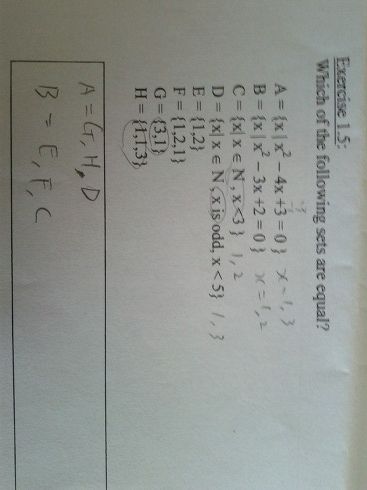 Exercise 1.5:
Which of the following sets are equal?
A = {x | x² − 4x + 3 = 0 } x = 1, 3
B = {x | x² − 3x + 2 = 0 } x = 1, 2
C = {x | x ∈ N , x < 3 } 1, 2
D = {x | x ∈ N, x is odd, x < 5} 1, 3
E = {1,2}
F = {1,2,1}
G = {3,1}
H = {1,1,3}
A = G, H, D
B = E, F, C